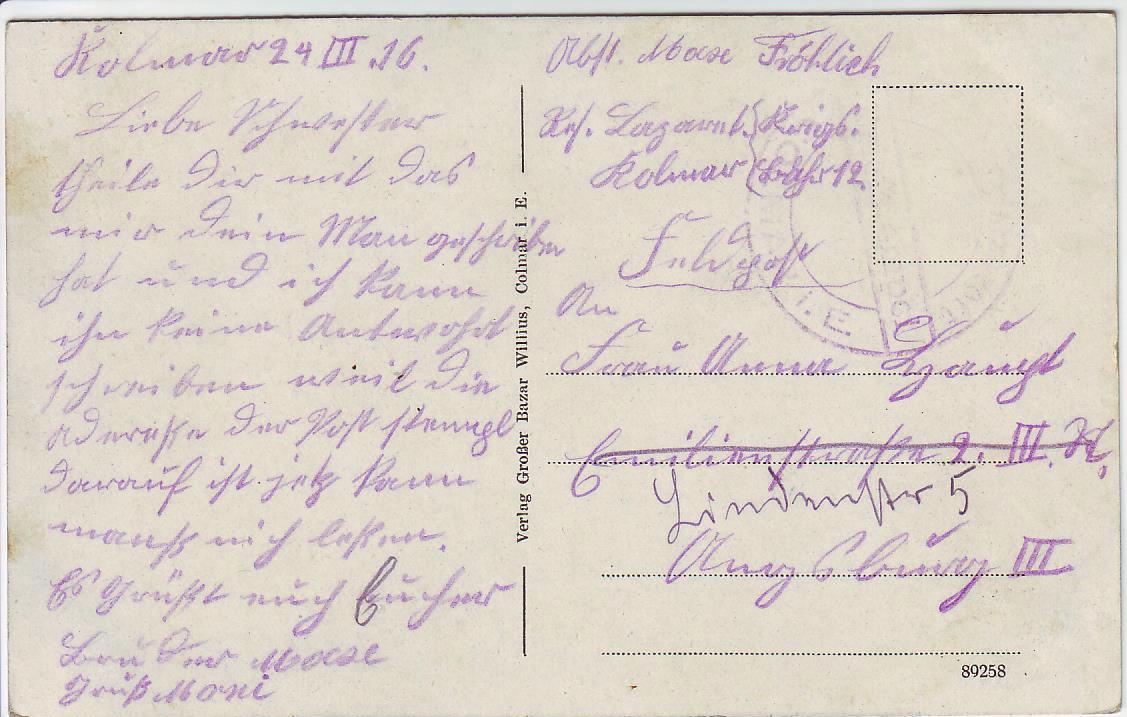 Kolmar 24 III. 16.
Liebe Schwester
theile dir mit das
mir dein Man geschriben
hat und ich kann
ihn keine Antwohrt
schreiben weil die
aderesse der Post stempl
darauf ist jetz kann
mans nich lessen.
Es Grüsst euch Eucher
Bruder Maxe
Gruß Moni
Verlag Großer Bazar Willius, Colmar i. E.
Abst. Maxe Fröhlich
Res. Lazaret. Krigs.
Kolmar 12
Feldpost
i. E.
An
Frau Anna Haupt
Emilienstrasse 2. III. St.
Lindenstr 5
Augsburg III
89258